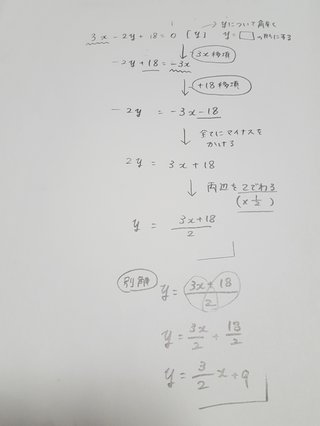 → yについて解く
3x - 2y + 18 = 0 [y] y = □ の形にする
↓ 3x移項
-2y + 18 = -3x
↓ +18移項
-2y = -3x - 18
↓ 全てにマイナスをかける
2y = 3x + 18
↓ 両辺を2でわる (× 1/2)
y = (3x + 18)/2
別解 y = (3x + 18)/2
y = 3x/2 + 18/2
y = 3/2 x + 9